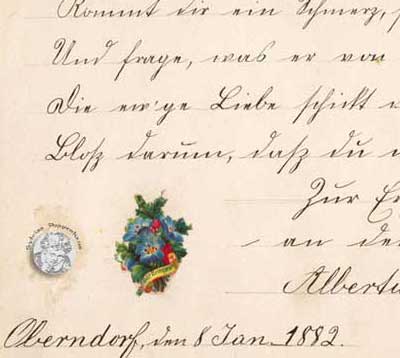 Kommt dir ein Schmerz, s
Und frage, was er von
Die ew'ge Liebe schickt
Bloß darum, daß du
Zur Er
an de
Albertu
Oberndorf, den 8 Jan. 1882.